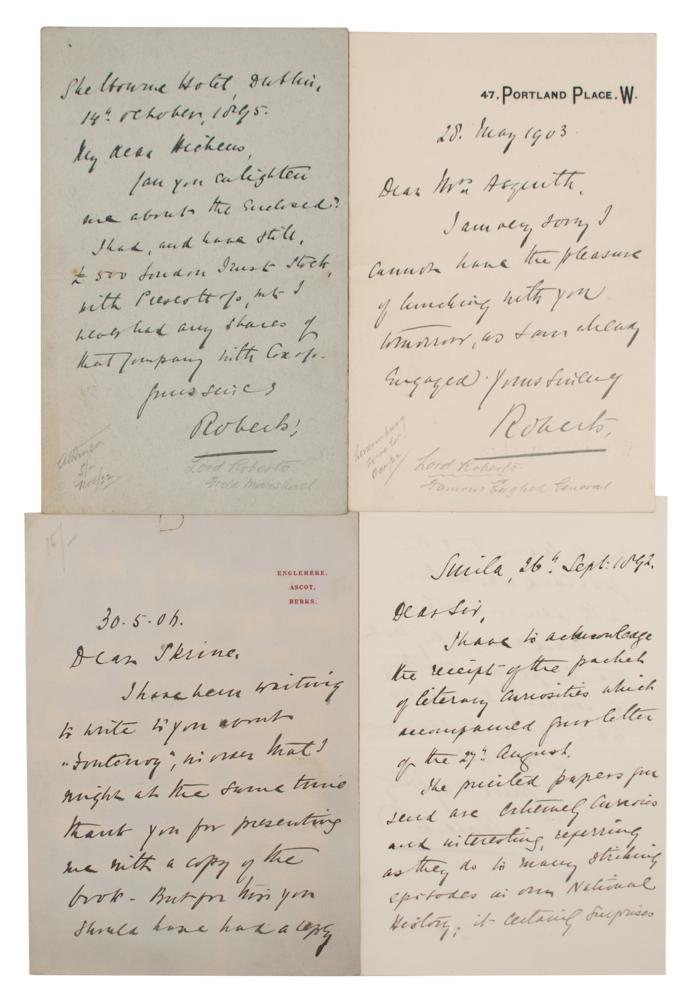 Shelbourne Hotel, Dublin,
14th October, 1895.
My dear Hichens,
Can you enlighten
me about the Enclosed?
I had, and have still,
£500 London Trust Stock,
with Prescott &co, but I
never had any shares of
that Company with Cox &co.
Yours sincy
Roberts,
Atkinson
5/-
Nov/22
Lord Roberts
Field Marshall
47, PORTLAND PLACE. W.
28. May 1903
Dear Mrs Asquith,
I am very sorry I
cannot have the pleasure
of lunching with you
tomorrow, as I am already
Engaged. Yours sincerely
Roberts,
Lord Roberts
Famous English General
15/-
ENGLEMERE,
ASCOT,
BERKS.
30.5.06.
Dear Skrine,
I have been waiting
to write to you about
"Fontenoy", in order that I
might at the same time
thank you for presenting
me with a copy of the
book. But for this you
should have had a reply
Simla, 26th Sept: 1892.
Dear Sir,
I have to acknowledge
the receipt of the packet
of literary curiosities which
accompanied your letter
of the 27th August.
The printed papers you
send are Extremely Curious
and interesting, referring
as they do to many striking
episodes in our National
History; it certainly surprises